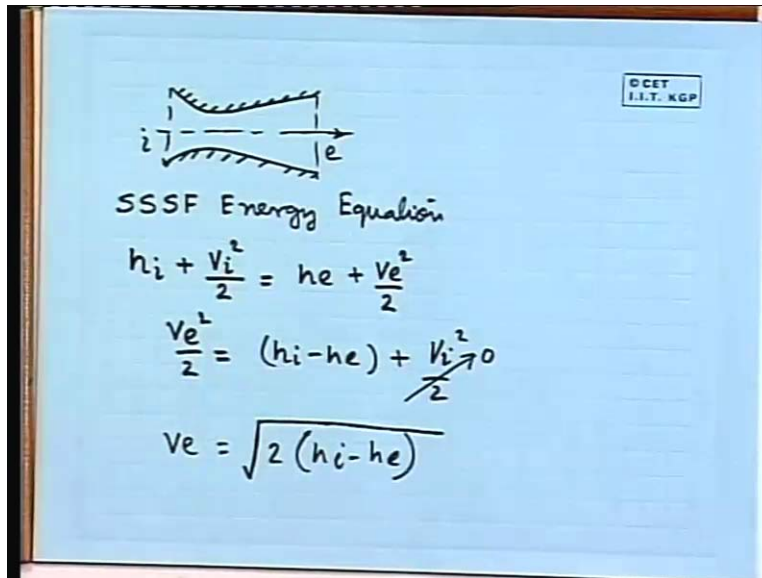 © CET
I.I.T. KGP
i
e
SSSF Energy Equation
hi + Vi²/2 = he + Ve²/2
Ve²/2 = (hi - he) + Vi²/2 → 0
Ve = √2 (hi - he)